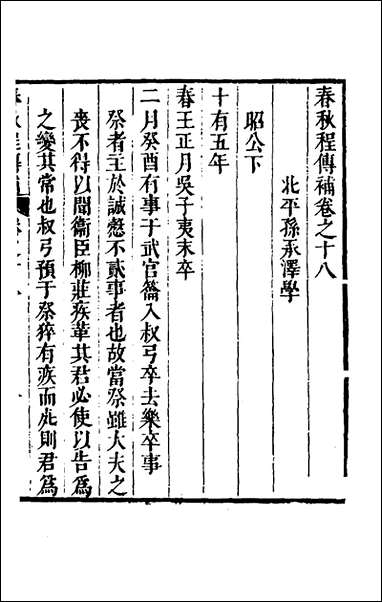 春秋程傳補卷之十八
北平孫承澤學
昭公下
十有五年
春王正月吳子夷末卒
二月癸酉有事于武宮籥入叔弓卒去樂卒事
祭者主於誠慤不貳事者也故當祭雖大夫之
喪不得以聞衞臣柳莊疾革其君必使以告爲
之變其常也叔弓預于祭猝有疾而死則君爲